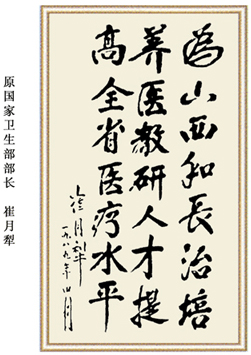 為山西和長治培
养医教研人才提
高全省医疗水平
崔月犁
一九八九年四月
原国家卫生部部长 崔月犁